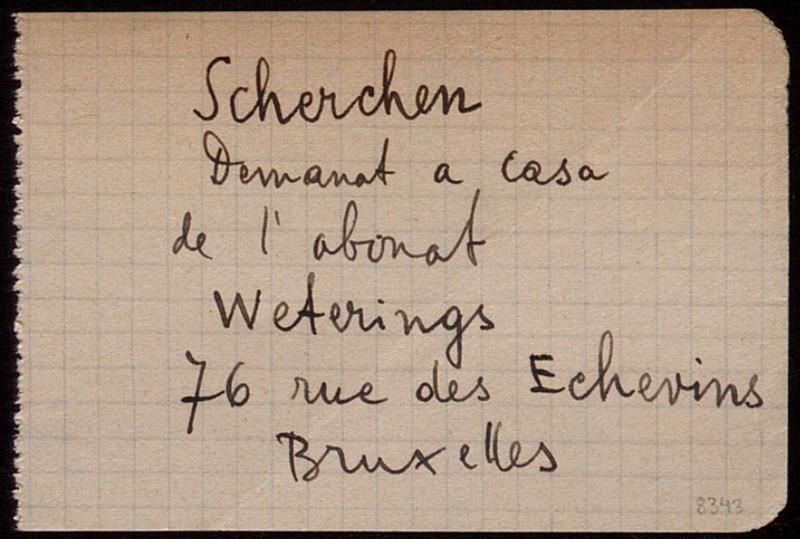 Scherchen
Demanat a casa
de l'abonat
Weterings
76 rue des Echevins
Bruxelles
8343